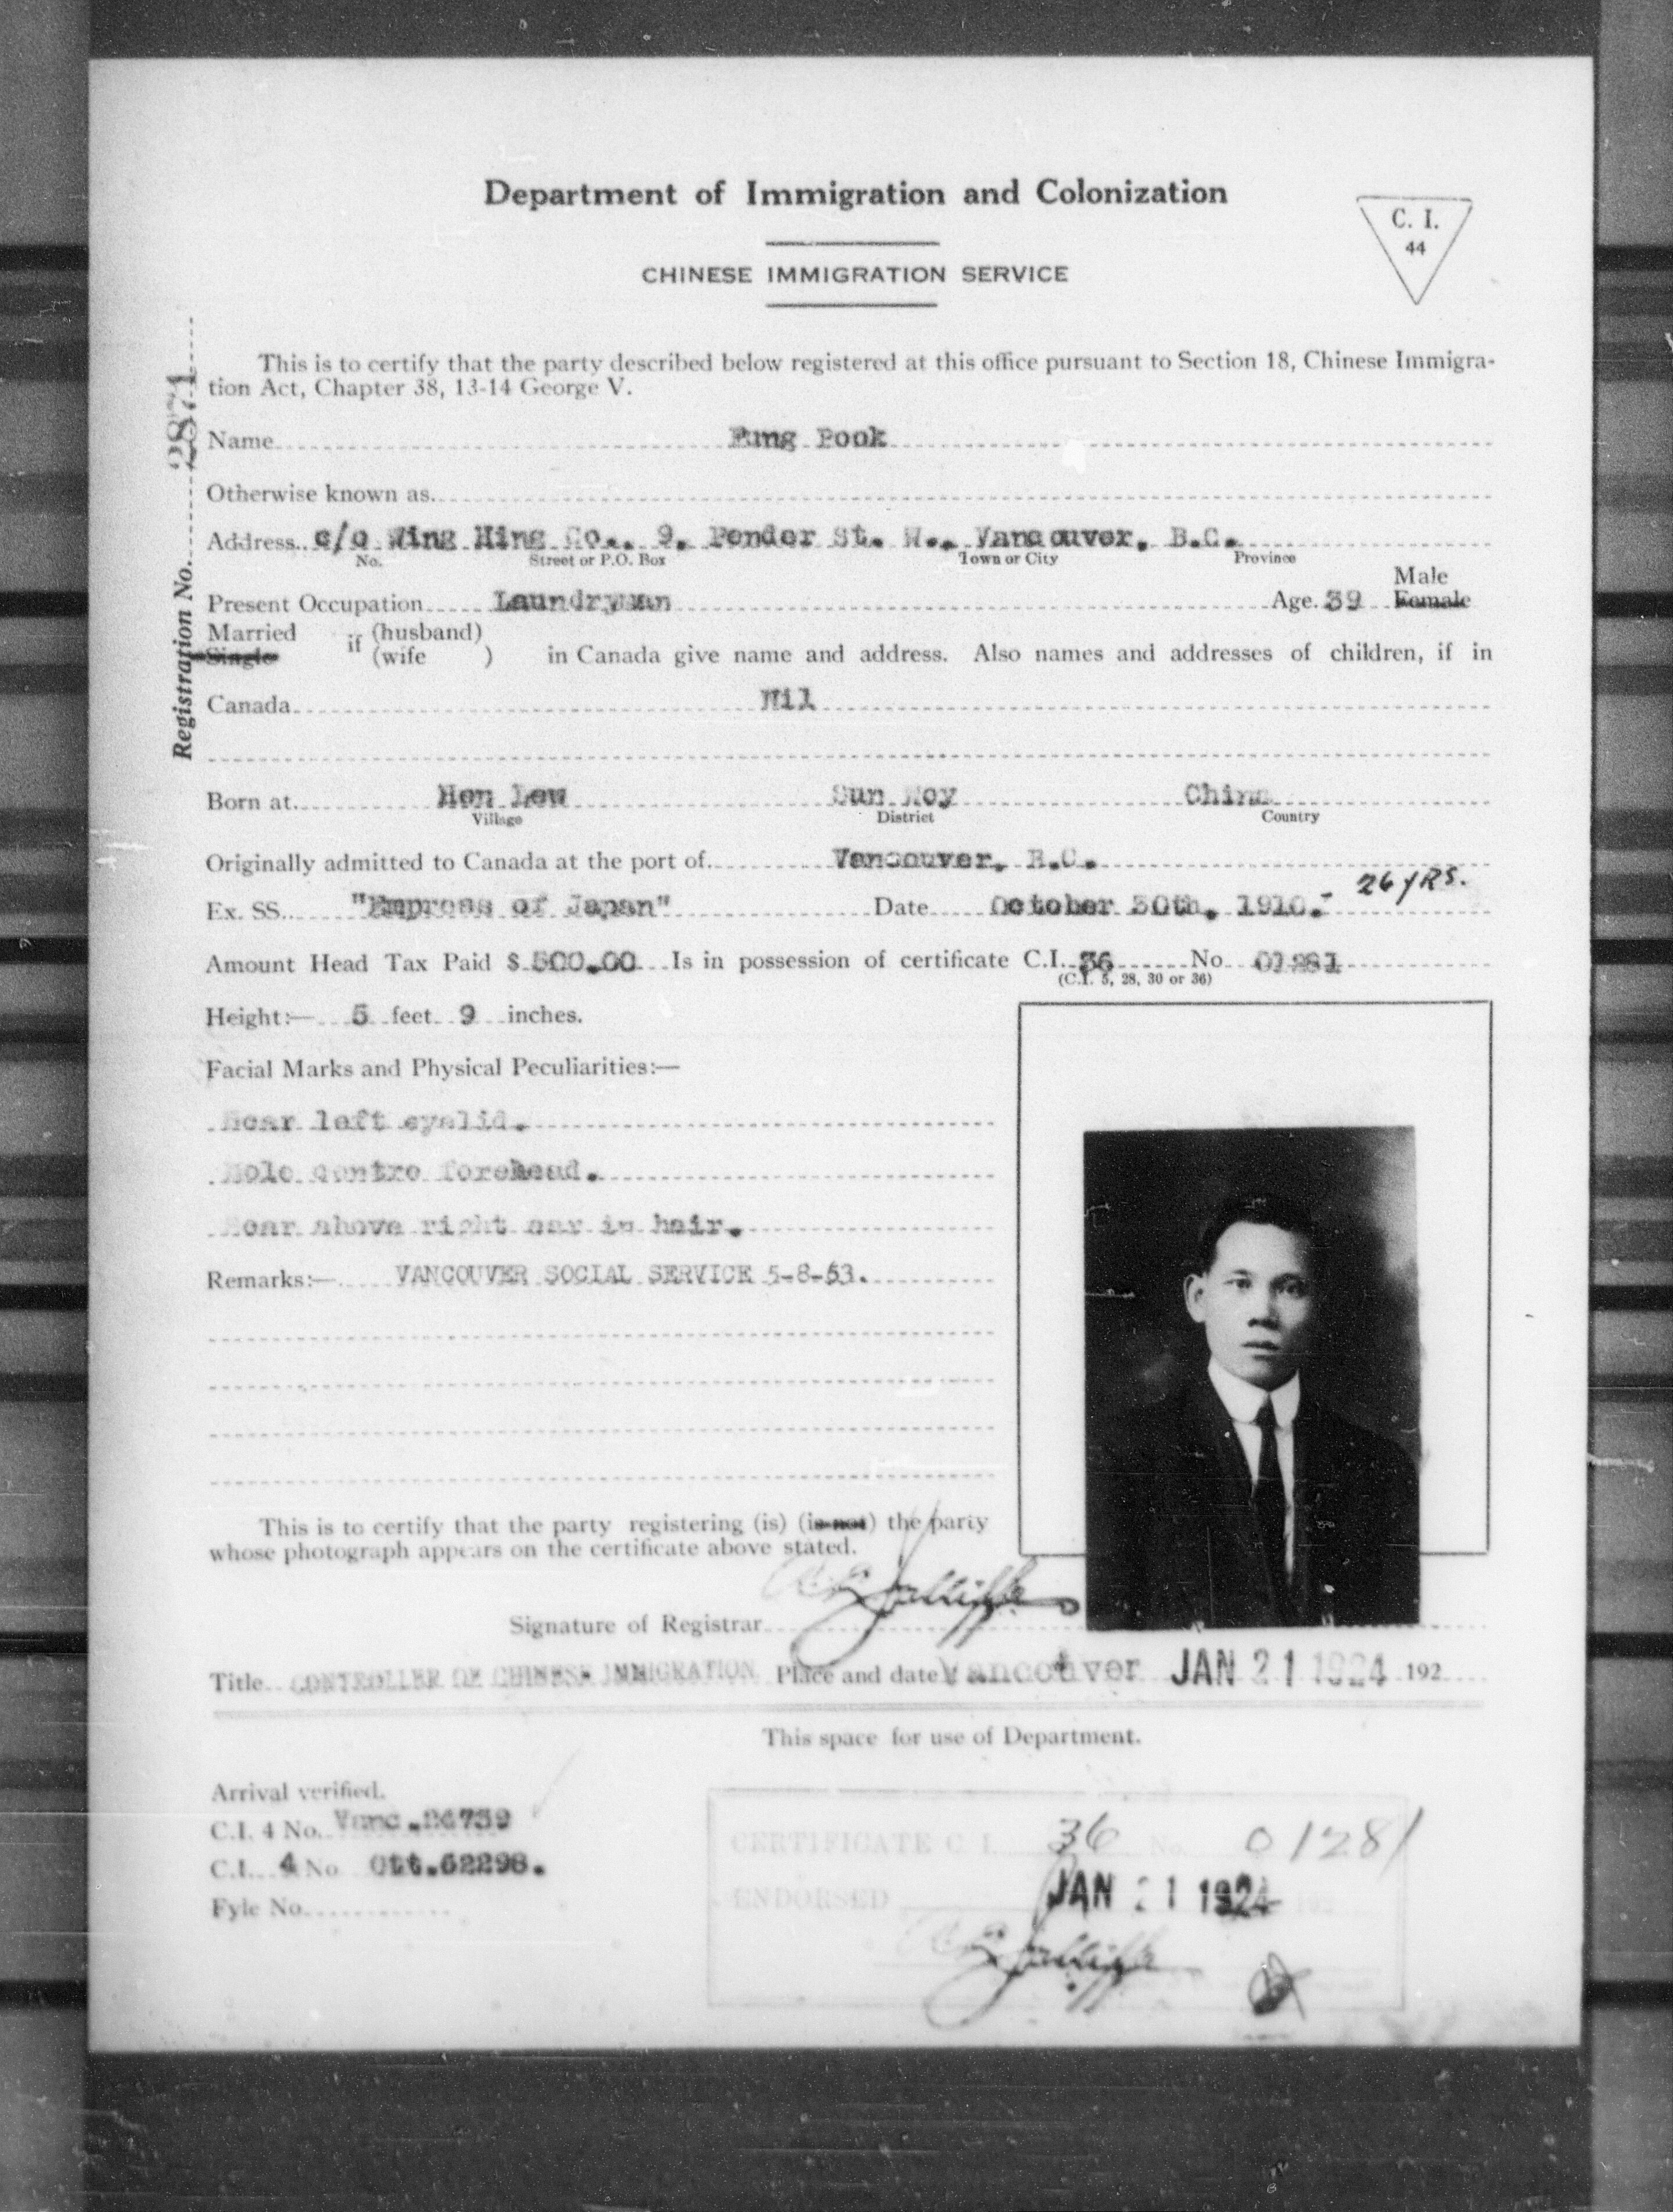 Department of Immigration and Colonization
C. I.
44
CHINESE IMMIGRATION SERVICE
Registration No. 2871
This is to certify that the party described below registered at this office pursuant to Section 18, Chinese Immigra-
tion Act, Chapter 38, 13-14 George V.
Name Fung Pook
Otherwise known as
Address c/o Wing Hing Co., 9, Pender St. W., Vancouver, B.C.
No. Street or P.O. Box Town or City Province
Male
Present Occupation Laundryman Age 39 Female
Married if (husband)
Single (wife ) in Canada give name and address. Also names and addresses of children, if in
Canada Nil
Born at Hon Lew Sun Woy China
Village District Country
Originally admitted to Canada at the port of Vancouver, B.C.
Ex. SS. "Empress of Japan" Date October 30th, 1910.- 26 yRS.
Amount Head Tax Paid $ 500.00 Is in possession of certificate C.I. 36 No 01281
(C.I. 5, 28, 30 or 36)
Height:— 5 feet 9 inches.
Facial Marks and Physical Peculiarities:—
Scar left eyelid.
Mole centre forehead.
Scar above right ear in hair.
Remarks:— VANCOUVER SOCIAL SERVICE 5-8-53.
This is to certify that the party registering (is) (is not) the party
whose photograph appears on the certificate above stated.
Signature of Registrar Jolliffe
Title CONTROLLER OF CHINESE IMMIGRATION Place and date Vancouver JAN 21 1924 192
This space for use of Department.
Arrival verified.
C.I. 4 No. Vanc.26759
C.I. 4 No Ott.62298.
Fyle No.
CERTIFICATE C. I. 36 No. 01281
ENDORSED JAN 21 1924 192
Jolliffe